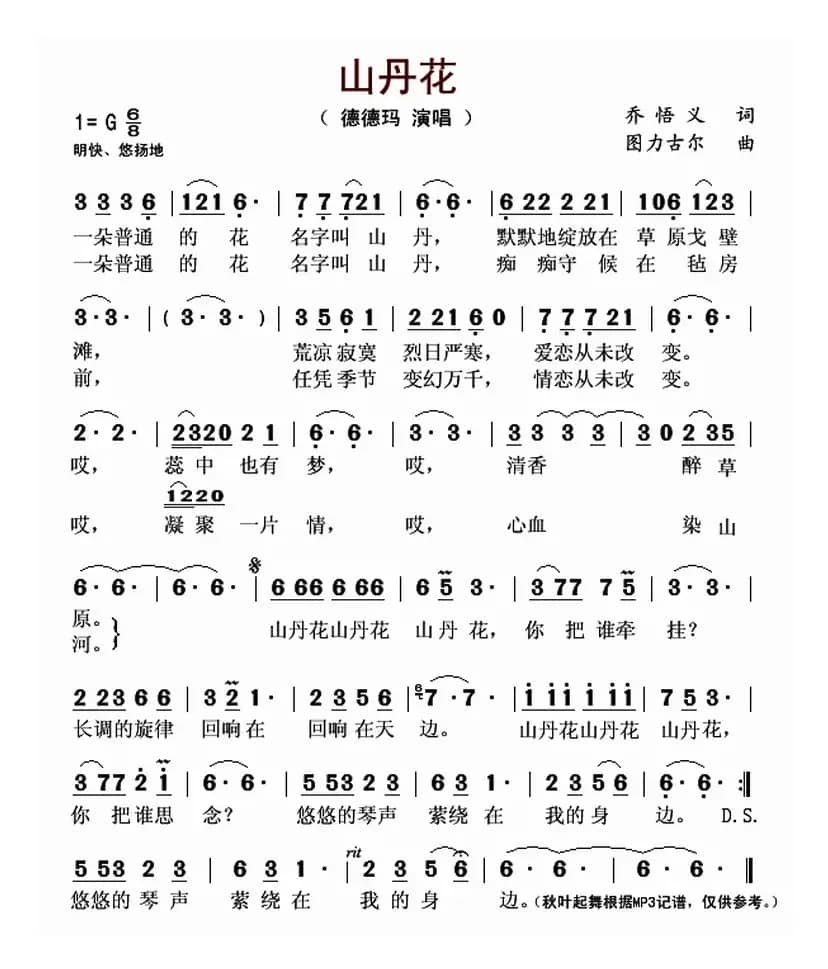 山丹花
（ 德德玛 演唱 ）
乔 悟 义 词
图力古尔 曲
1= G 6/8
明快、悠扬地
3 3 3 6 | 121 6· | 7 7 721 | 6·6· | 6 22 2 21 | 106 123 |
一朵普通 的 花 名字叫 山 丹， 默默地绽放在 草 原戈 壁
一朵普通 的 花 名字叫 山 丹， 痴 痴守 候 在 毡 房
3·3· | ( 3· 3· ) | 3 5 6 1 | 2 21 6 0 | 7 7 7 21 | 6· 6· |
滩， 荒凉 寂寞 烈日严寒， 爱恋从未改 变。
前， 任凭 季节 变幻万千， 情恋从未改 变。
2· 2· | 2320 2 1 | 6· 6· | 3· 3· | 3 3 3 3 | 3 0 2 35 |
哎， 蕊 中 也有 梦， 哎， 清香 醉 草
1220
哎， 凝 聚 一片 情， 哎， 心血 染 山
6· 6· | 6· 6· | 6 66 6 66 | 6 5 3· | 3 77 7 5 | 3· 3· |
原。 山丹花山丹花 山 丹 花， 你 把 谁牵 挂？
河。
2 23 6 6 | 3 2 1· | 2 3 5 6 | 6 7 · 7 · | 1 11 1 11 | 7 5 3· |
长调的旋律 回响 在 回响 在天 边。 山丹花山丹花 山丹花，
3 77 2 1 | 6· 6· | 5 53 2 3 | 6 3 1· | 2 3 5 6 | 6· 6· :||
你 把谁思 念？ 悠悠的琴声 萦绕 在 我的 身 边。 D.S.
rit
5 53 2 3 | 6 3 1· | 2 3 5 6 | 6· 6· | 6· 6· ||
悠悠的 琴 声 萦 绕 在 我 的 身 边。(秋叶起舞根据MP3记谱，仅供参考。)